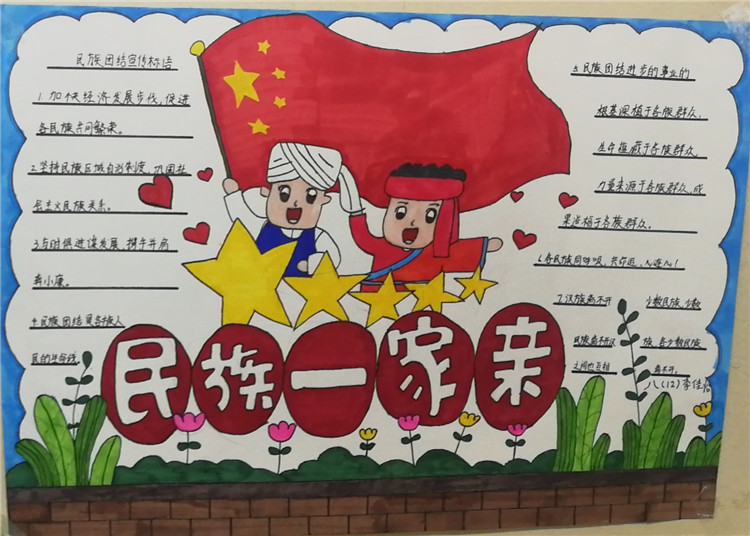 民族团结宣传标语
1.加快经济发展步伐，促进
各民族共同繁荣。
2.坚持民族区域自治制度，巩固社
会主义民族关系。
3.与时俱进谋发展 携手并肩
奔小康。
4.民族团结是各族人
民的生命线。
民族一家亲
5.民族团结进步的事业的
根基深植于各族群众，
生命蕴藏于各族群众，
力量来源于各族群众，成
果造福于各族群众。
6.各民族同呼吸，共命运，心连心
7.汉族离不开 少数民族，少数
民族离不开汉 族，各少数民族
之间也互相 离不开。
八(12)李佳